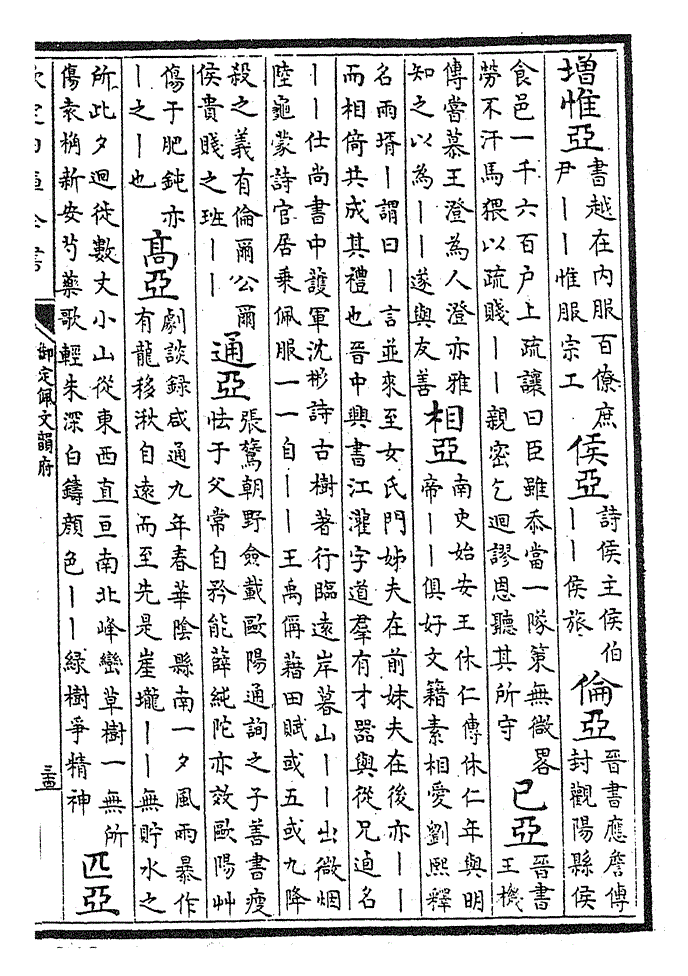 增惟亞
書越在内服百僚庶
尹丨丨惟服宗工
侯亞
詩侯主侯伯
丨丨侯旅
倫亞
晉書應詹傳
封觀陽縣侯
食邑一千六百户上疏讓曰臣雖忝當一隊策無微畧
勞不汗馬猥以疏賤丨丨親密乞迴謬恩聽其所守
已亞
晉書
王機
傳嘗慕王澄為人澄亦雅
知之以為丨丨遂與友善
相亞
南史始安王休仁傳休仁年與明
帝丨丨俱好文籍素相愛劉熙釋
名兩壻丨謂曰丨言並來至女氏門姊夫在前妹夫在後亦丨丨
而相倚共成其禮也晉中興書江灌字道羣有才器與從兄逌名
丨丨仕尚書中護軍沈彬詩古樹著行臨遠岸暮山丨丨出微烟
陸龜蒙詩官居乗佩服一一自丨丨王禹偁藉田賦或五或九降
殺之義有倫爾公爾
侯貴賤之班丨丨
通亞
張鷟朝野僉載歐陽通詢之子善書瘦
怯于父常自矜能薛純陀亦效歐陽艸
傷于肥鈍亦
丨之丨也
高亞
劇談録咸通九年春華陰縣南一夕風雨暴作
有龍移湫自遠而至先是崖壠丨丨無貯水之
所此夕迴徙數丈小山從東西直亘南北峰巒草樹一無所
傷袁桷新安芍藥歌輕朱深白鑄顔色丨丨緑樹爭精神
匹亞
御定佩文韻府